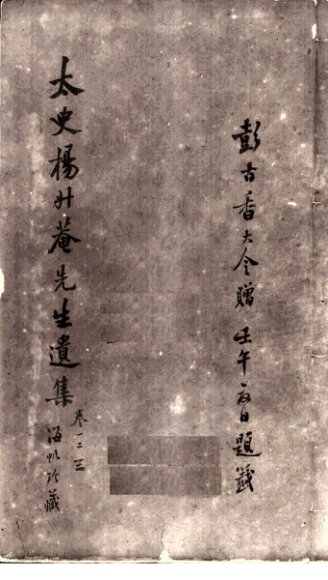 彭古香大令贈 壬午夏日題籤
太史楊升菴先生遺集
卷一二三
海帆珍藏